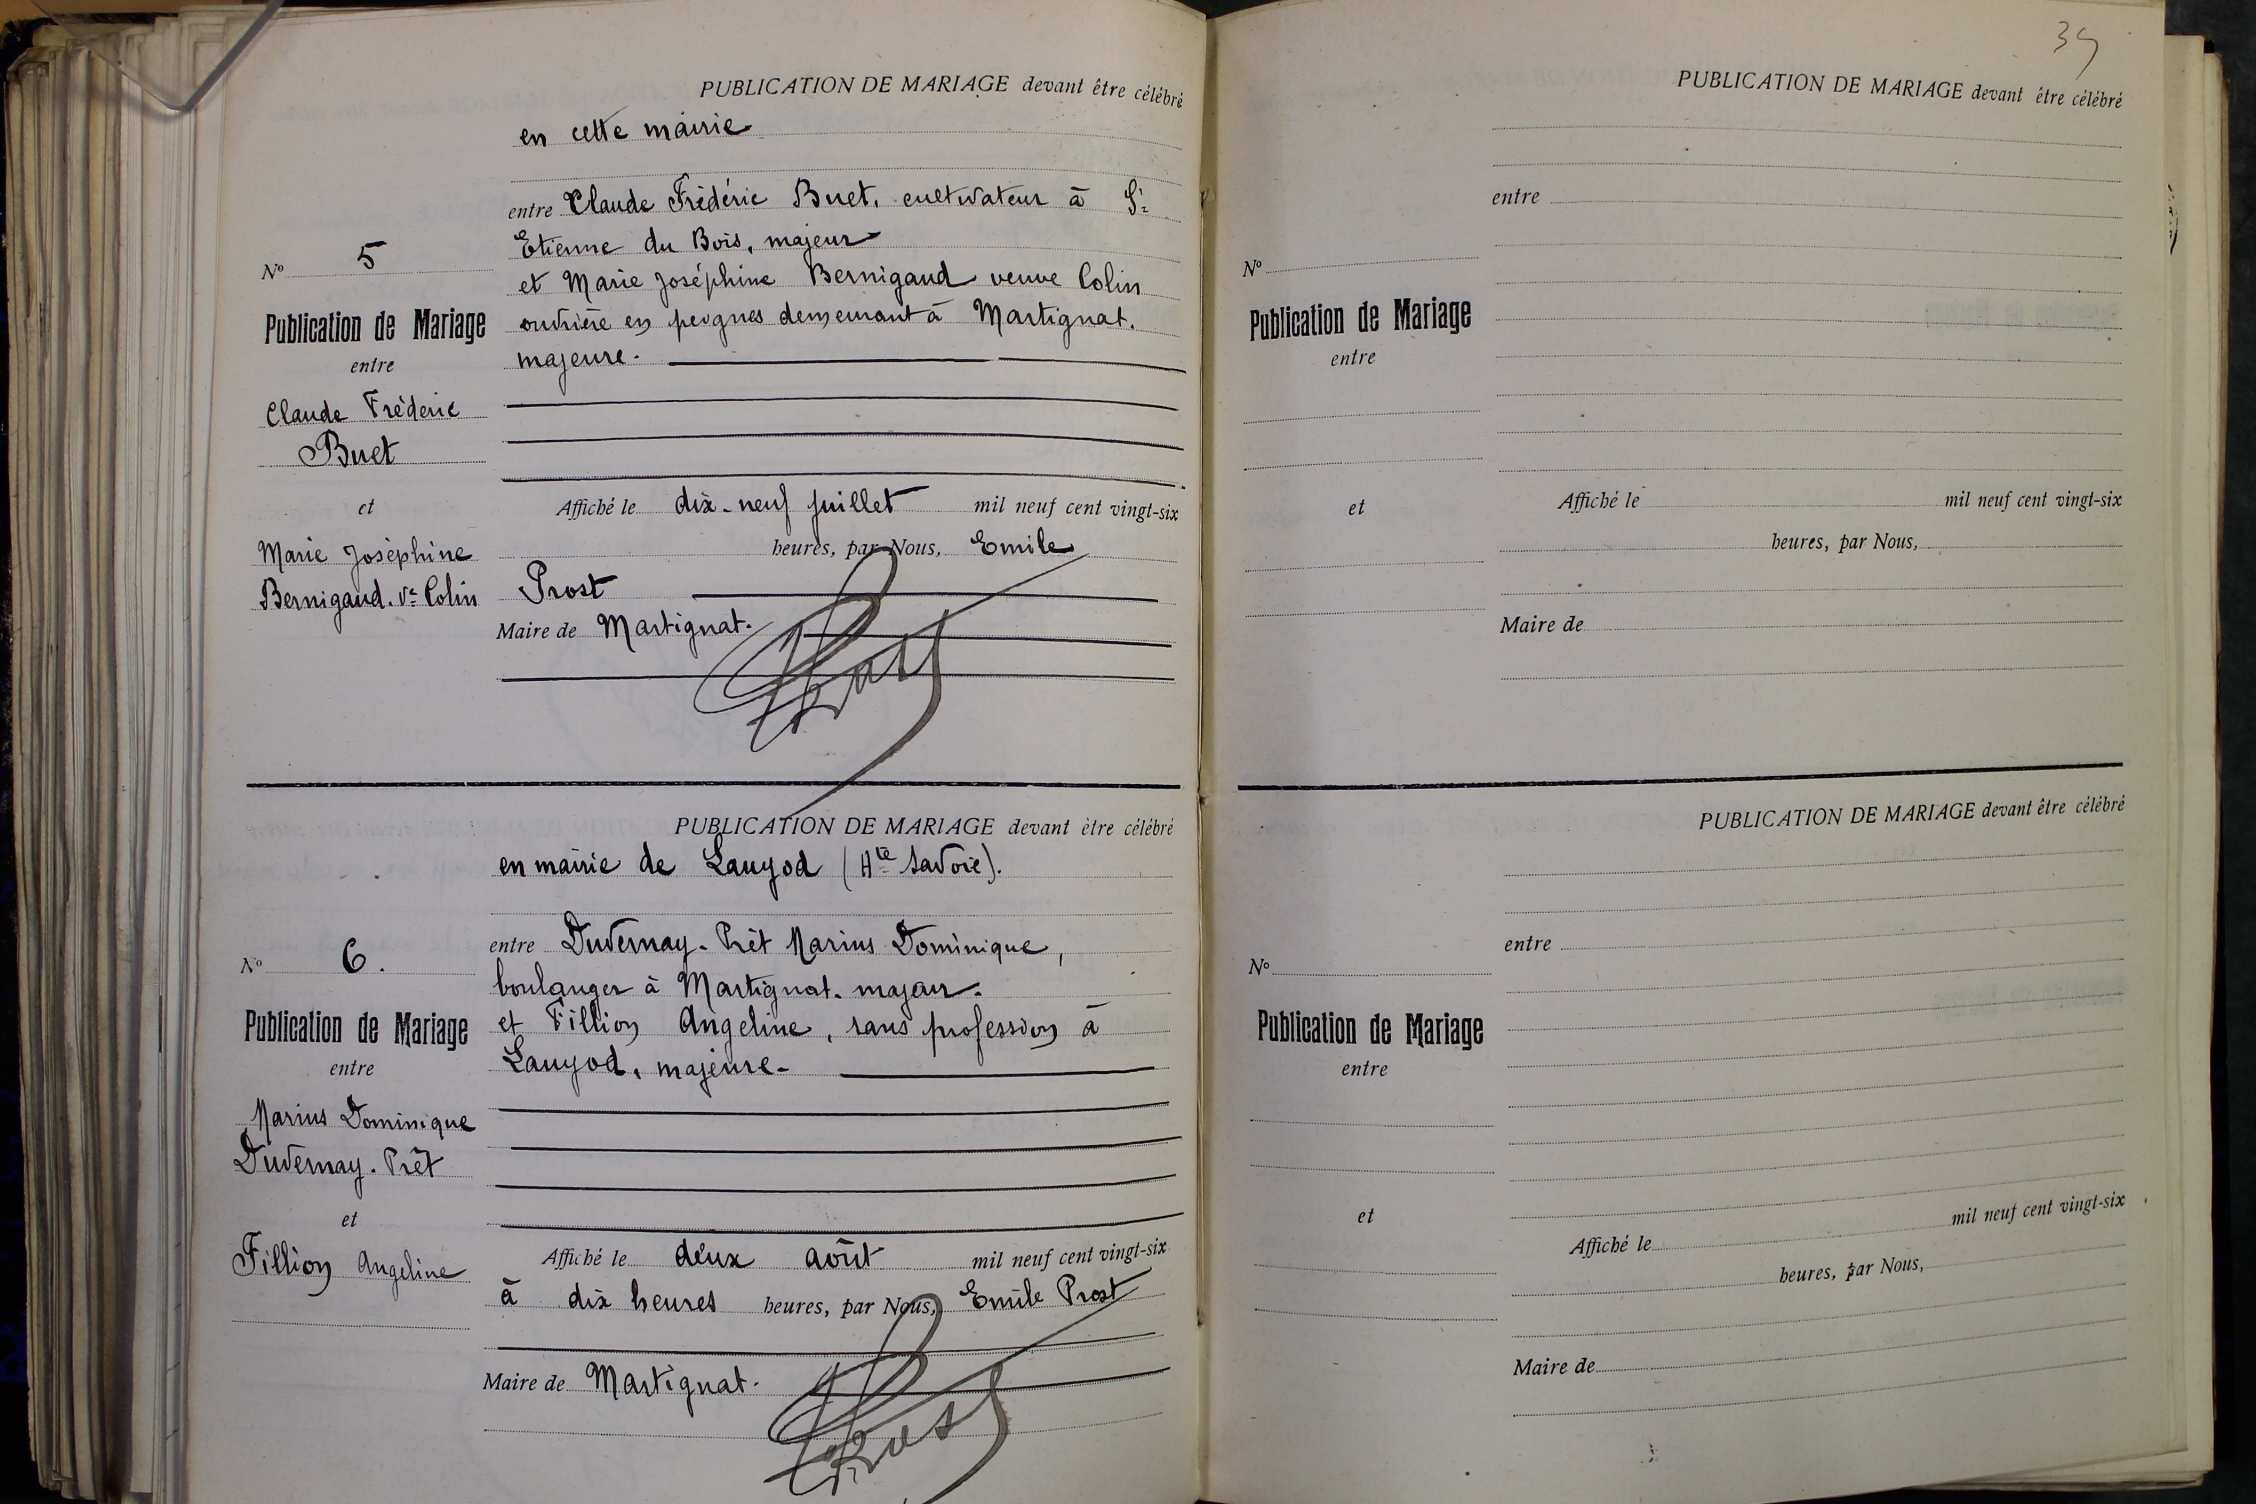 PUBLICATION DE MARIAGE devant être célébré
en cette mairie
entre Claude Frédéric Buet, cultivateur à St
Etienne du Bois, majeur
et Marie Joséphine Bernigaud veuve Colin
ouvrière en peignes demeurant à Martignat.
majeure.
N° 5
Publication de Mariage
entre
Claude Fréderic
Buet
et
Marie Joséphine
Bernigaud. Ve Colin
Affiché le dix-neuf juillet mil neuf cent vingt-six
heures, par Nous, Emile
Prost
Maire de Martignat.
Prost
PUBLICATION DE MARIAGE devant être célébré
en mairie de Lauyod (Hte Savoie).
entre Duvernay-Prêt Marius Dominique,
boulanger à Martignat. majeur.
et Fillion Angeline, sans profession à
Lauyod, majeure-
N° 6.
Publication de Mariage
entre
Marius Dominique
Duvernay. Prêt
et
Fillion Angeline
Affiché le deux août mil neuf cent vingt-six
à dix heures heures, par Nous, Emile Prost
Maire de Martignat.
Prost
39
PUBLICATION DE MARIAGE devant être célébré
entre
N°
Publication de Mariage
entre
et
Affiché le mil neuf cent vingt-six
heures, par Nous,
Maire de
PUBLICATION DE MARIAGE devant être célébré
entre
N°
Publication de Mariage
entre
et
Affiché le mil neuf cent vingt-six
heures, par Nous,
Maire de